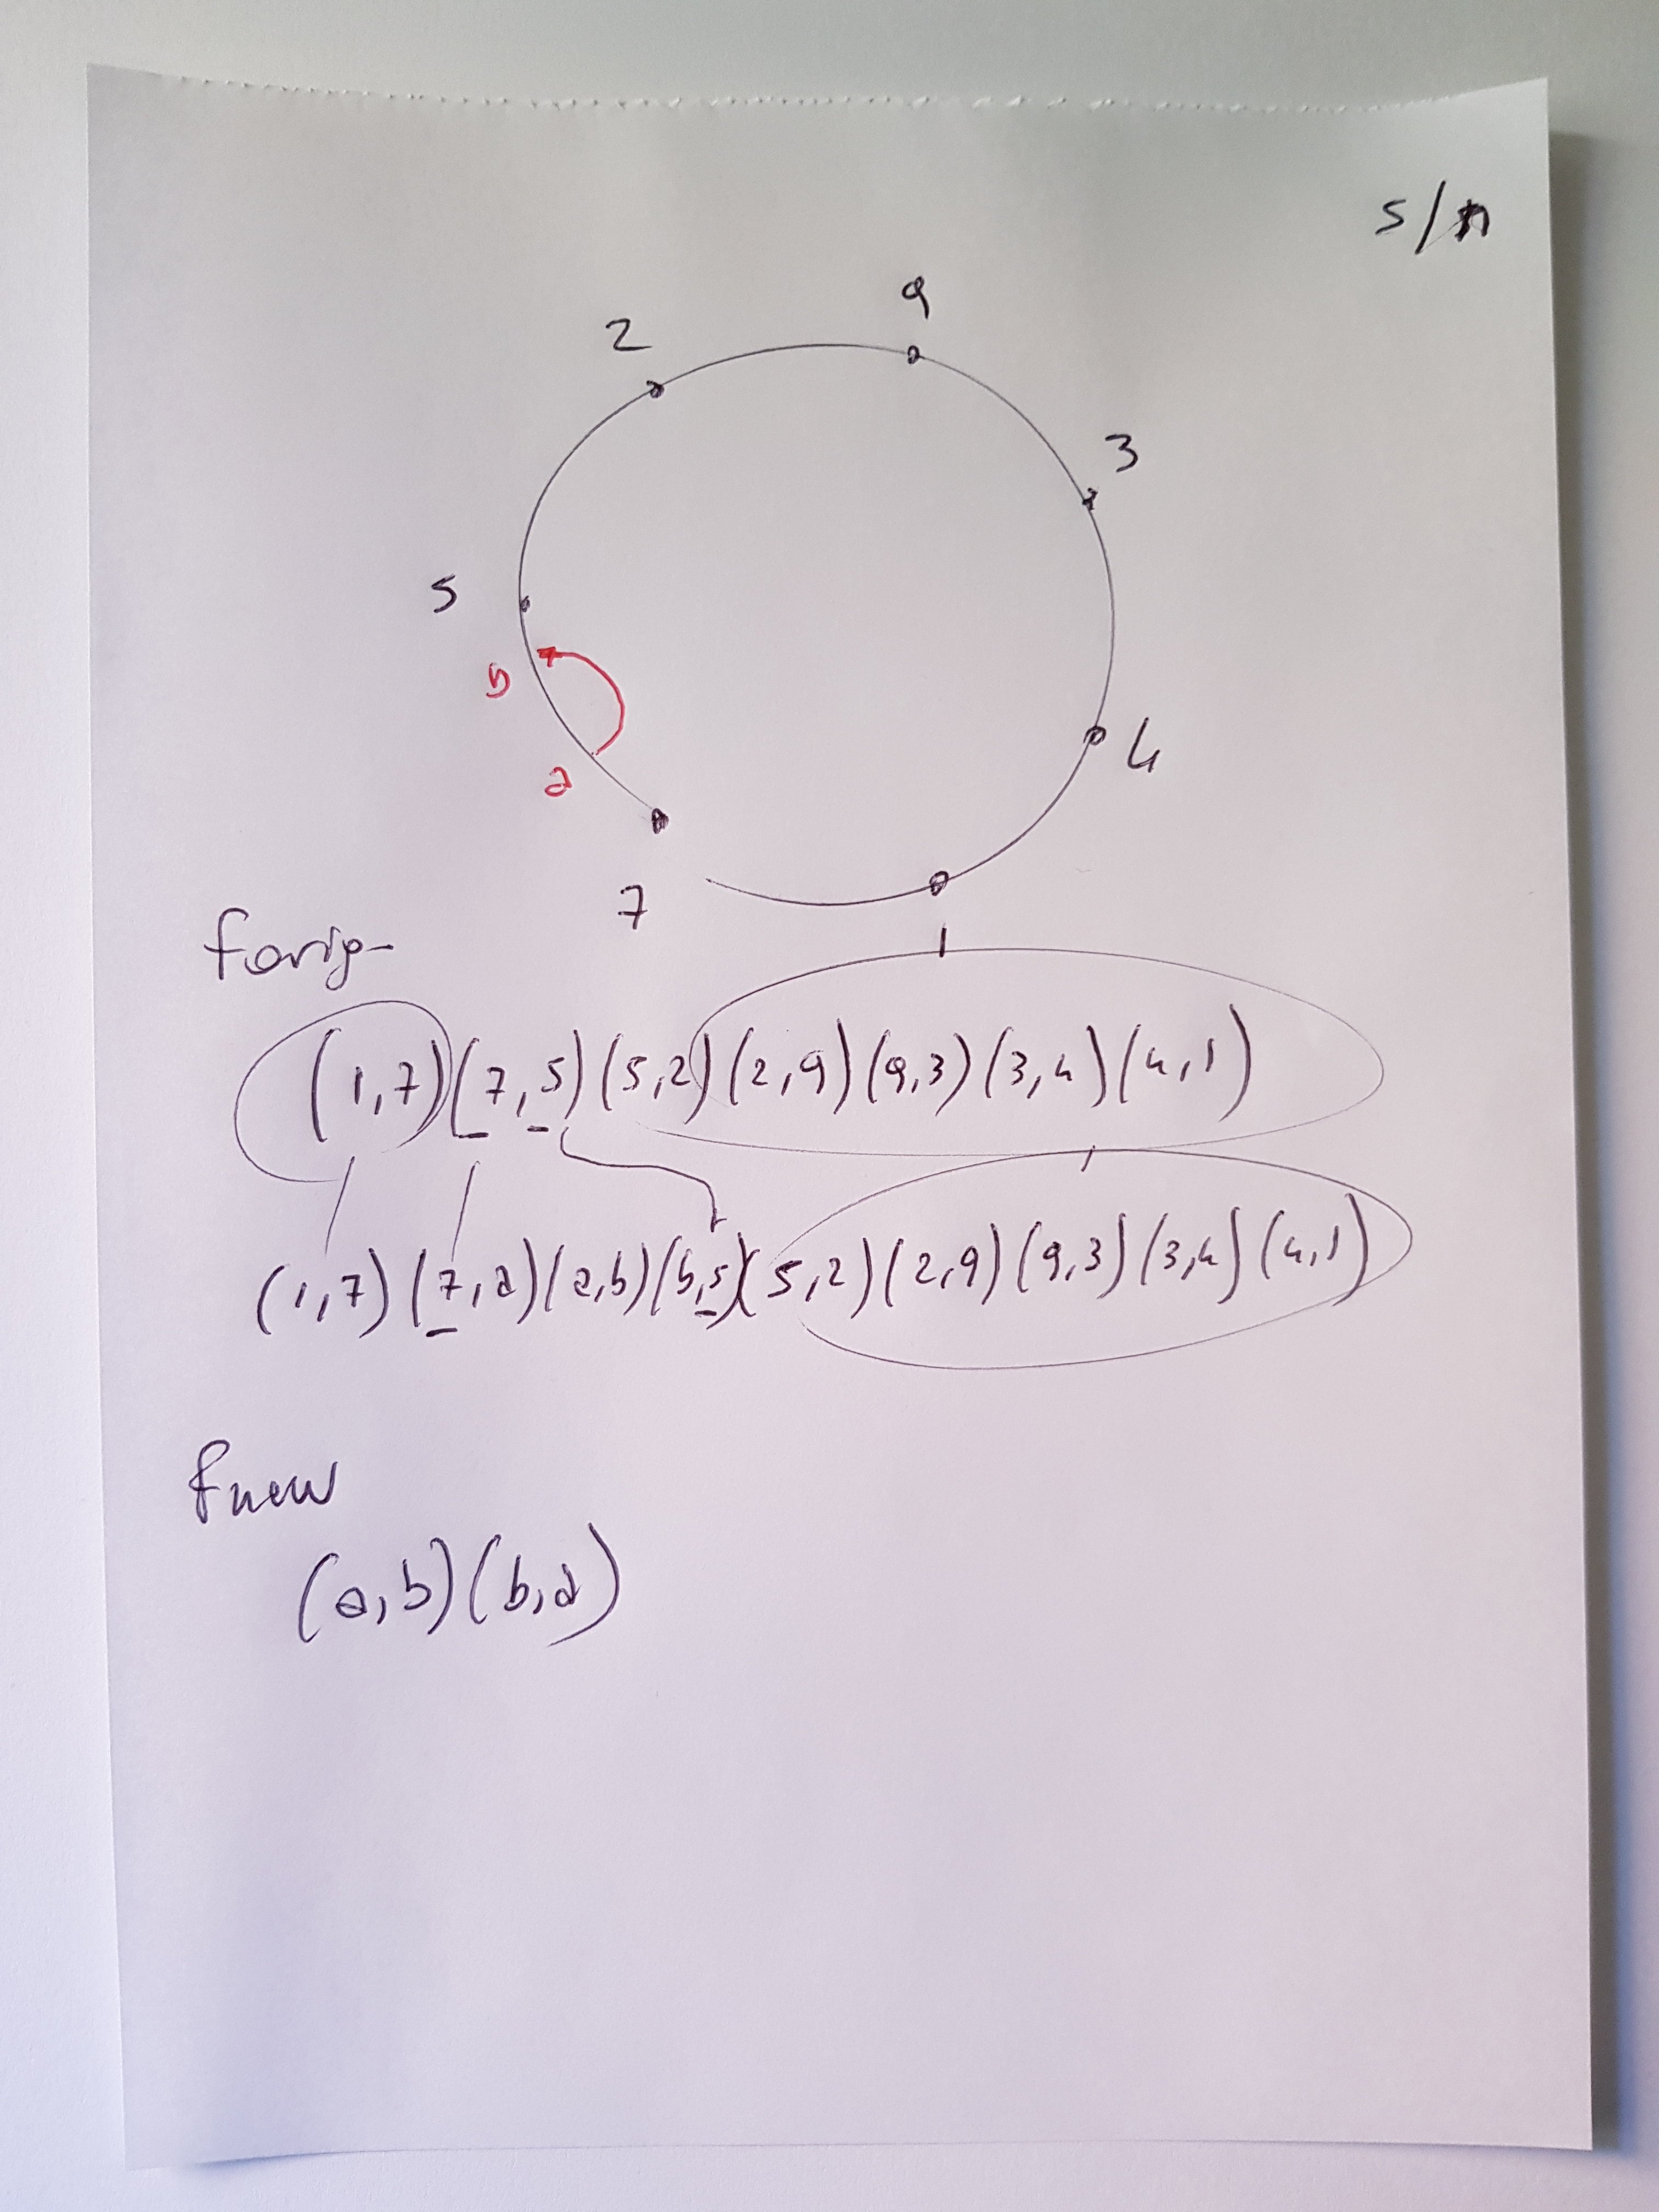 s/n
9
2
3
5
b
4
a
7
1
forig
(1,7)(7,5)(5,2)(2,9)(9,3)(3,4)(4,1)
(1,7)(7,a)(a,b)(b,5)(5,2)(2,9)(9,3)(3,4)(4,1)
fnew
(a,b)(b,a)